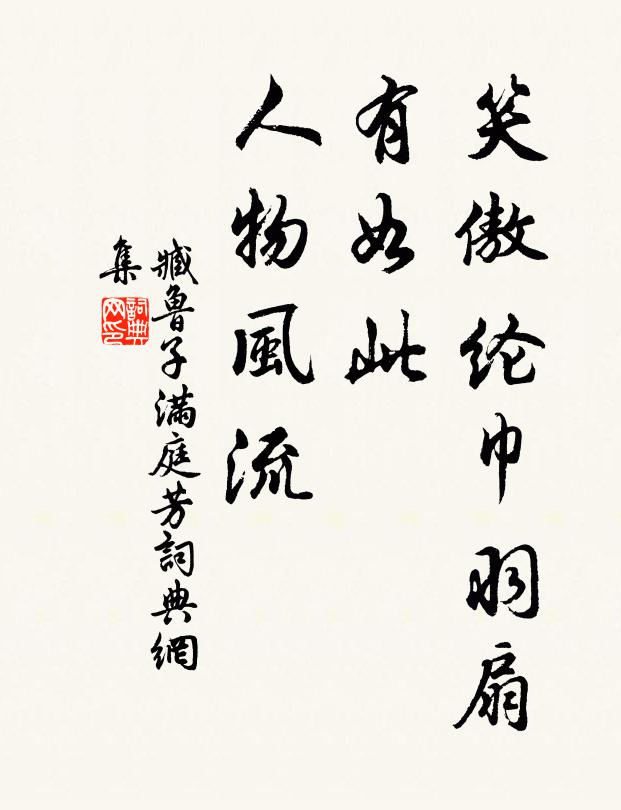 笑傲纶巾羽扇
有如此
人物風流
臧魯子滿庭芳詞典網
集
詞典網印